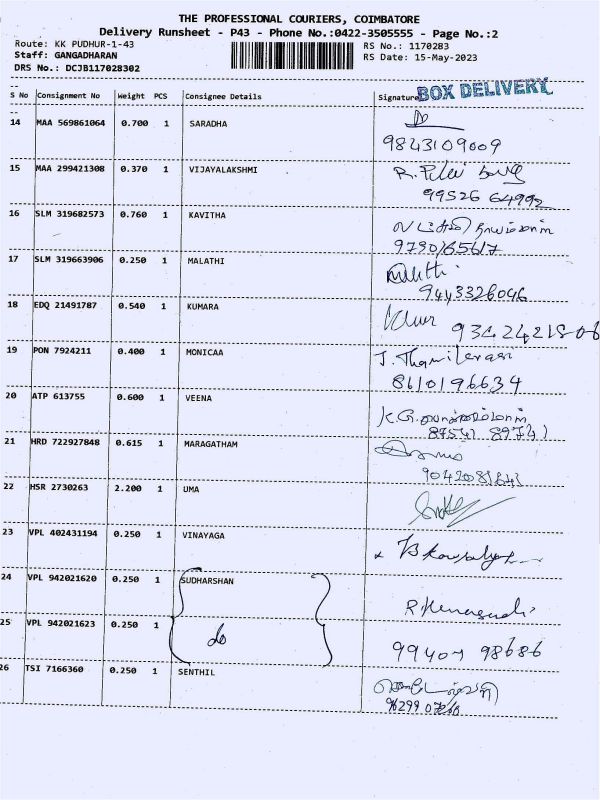 THE PROFESSIONAL COURIERS, COIMBATORE
Delivery Runsheet - P43 - Phone No.:0422-3505555 - Page No.:2
Route: KK PUDHUR-1-43 RS No.: 1170283
Staff: GANGADHARAN RS Date: 15-May-2023
DRS No.: DCJB117028302
BOX DELIVERY
S No Consignment No Weight PCS Consignee Details Signature
14 MAA 569861064 0.700 1 SARADHA
9843109009
15 MAA 299421308 0.370 1 VIJAYALAKSHMI R.
99526 64992
16 SLM 319682573 0.760 1 KAVITHA
9790165617
17 SLM 319663906 0.250 1 MALATHI Malathi
9443326046
18 EDQ 21491787 0.540 1 KUMARA
9342421806
19 PON 7924211 0.400 1 MONICAA J. Thamilarasi
8610196634
20 ATP 613755 0.600 1 VEENA K.G.
87541 89741
21 HRD 722927848 0.615 1 MARAGATHAM
22 HSR 2730263 2.200 1 UMA
23 VPL 402431194 0.250 1 VINAYAGA
24 VPL 942021620 0.250 1 SUDHARSHAN
25 VPL 942021623 0.250 1 do
99407 98686
26 TSI 7166360 0.250 1 SENTHIL